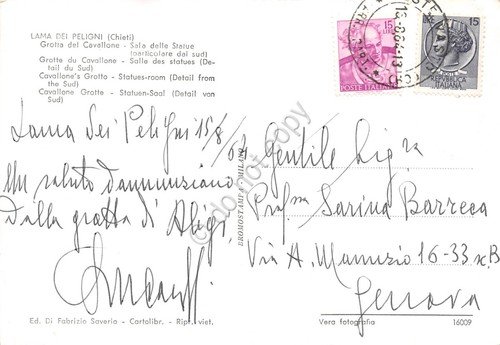 LAMA DEI PELIGNI (Chieti)
Grotta del Cavallone - Sala delle Statue
(particolare dal sud)
Grotte du Cavallone - Salle des statues (De-
tail du Sud)
Cavallone's Grotto - Statues-room (Detail from
the Sud)
Cavallone Grotte - Statuen-Saal (Detail von
Sud)
15 LIRE
POSTE ITALIANE
15
REPUBBLICA
ITALIANA
Lama dei Peligni 15/8/64
Un saluto dannunziano
Dalla grotta di Aligi
Gentile Sig.ra
Prof.ssa Sarina Barreca
Via A. Manuzio 16-33 B
Genova
BROMOSTAMPA - MILANO
Ed. Di Fabrizio Saverio - Cartolibr. - Ripr. viet.
Vera fotografia
16009